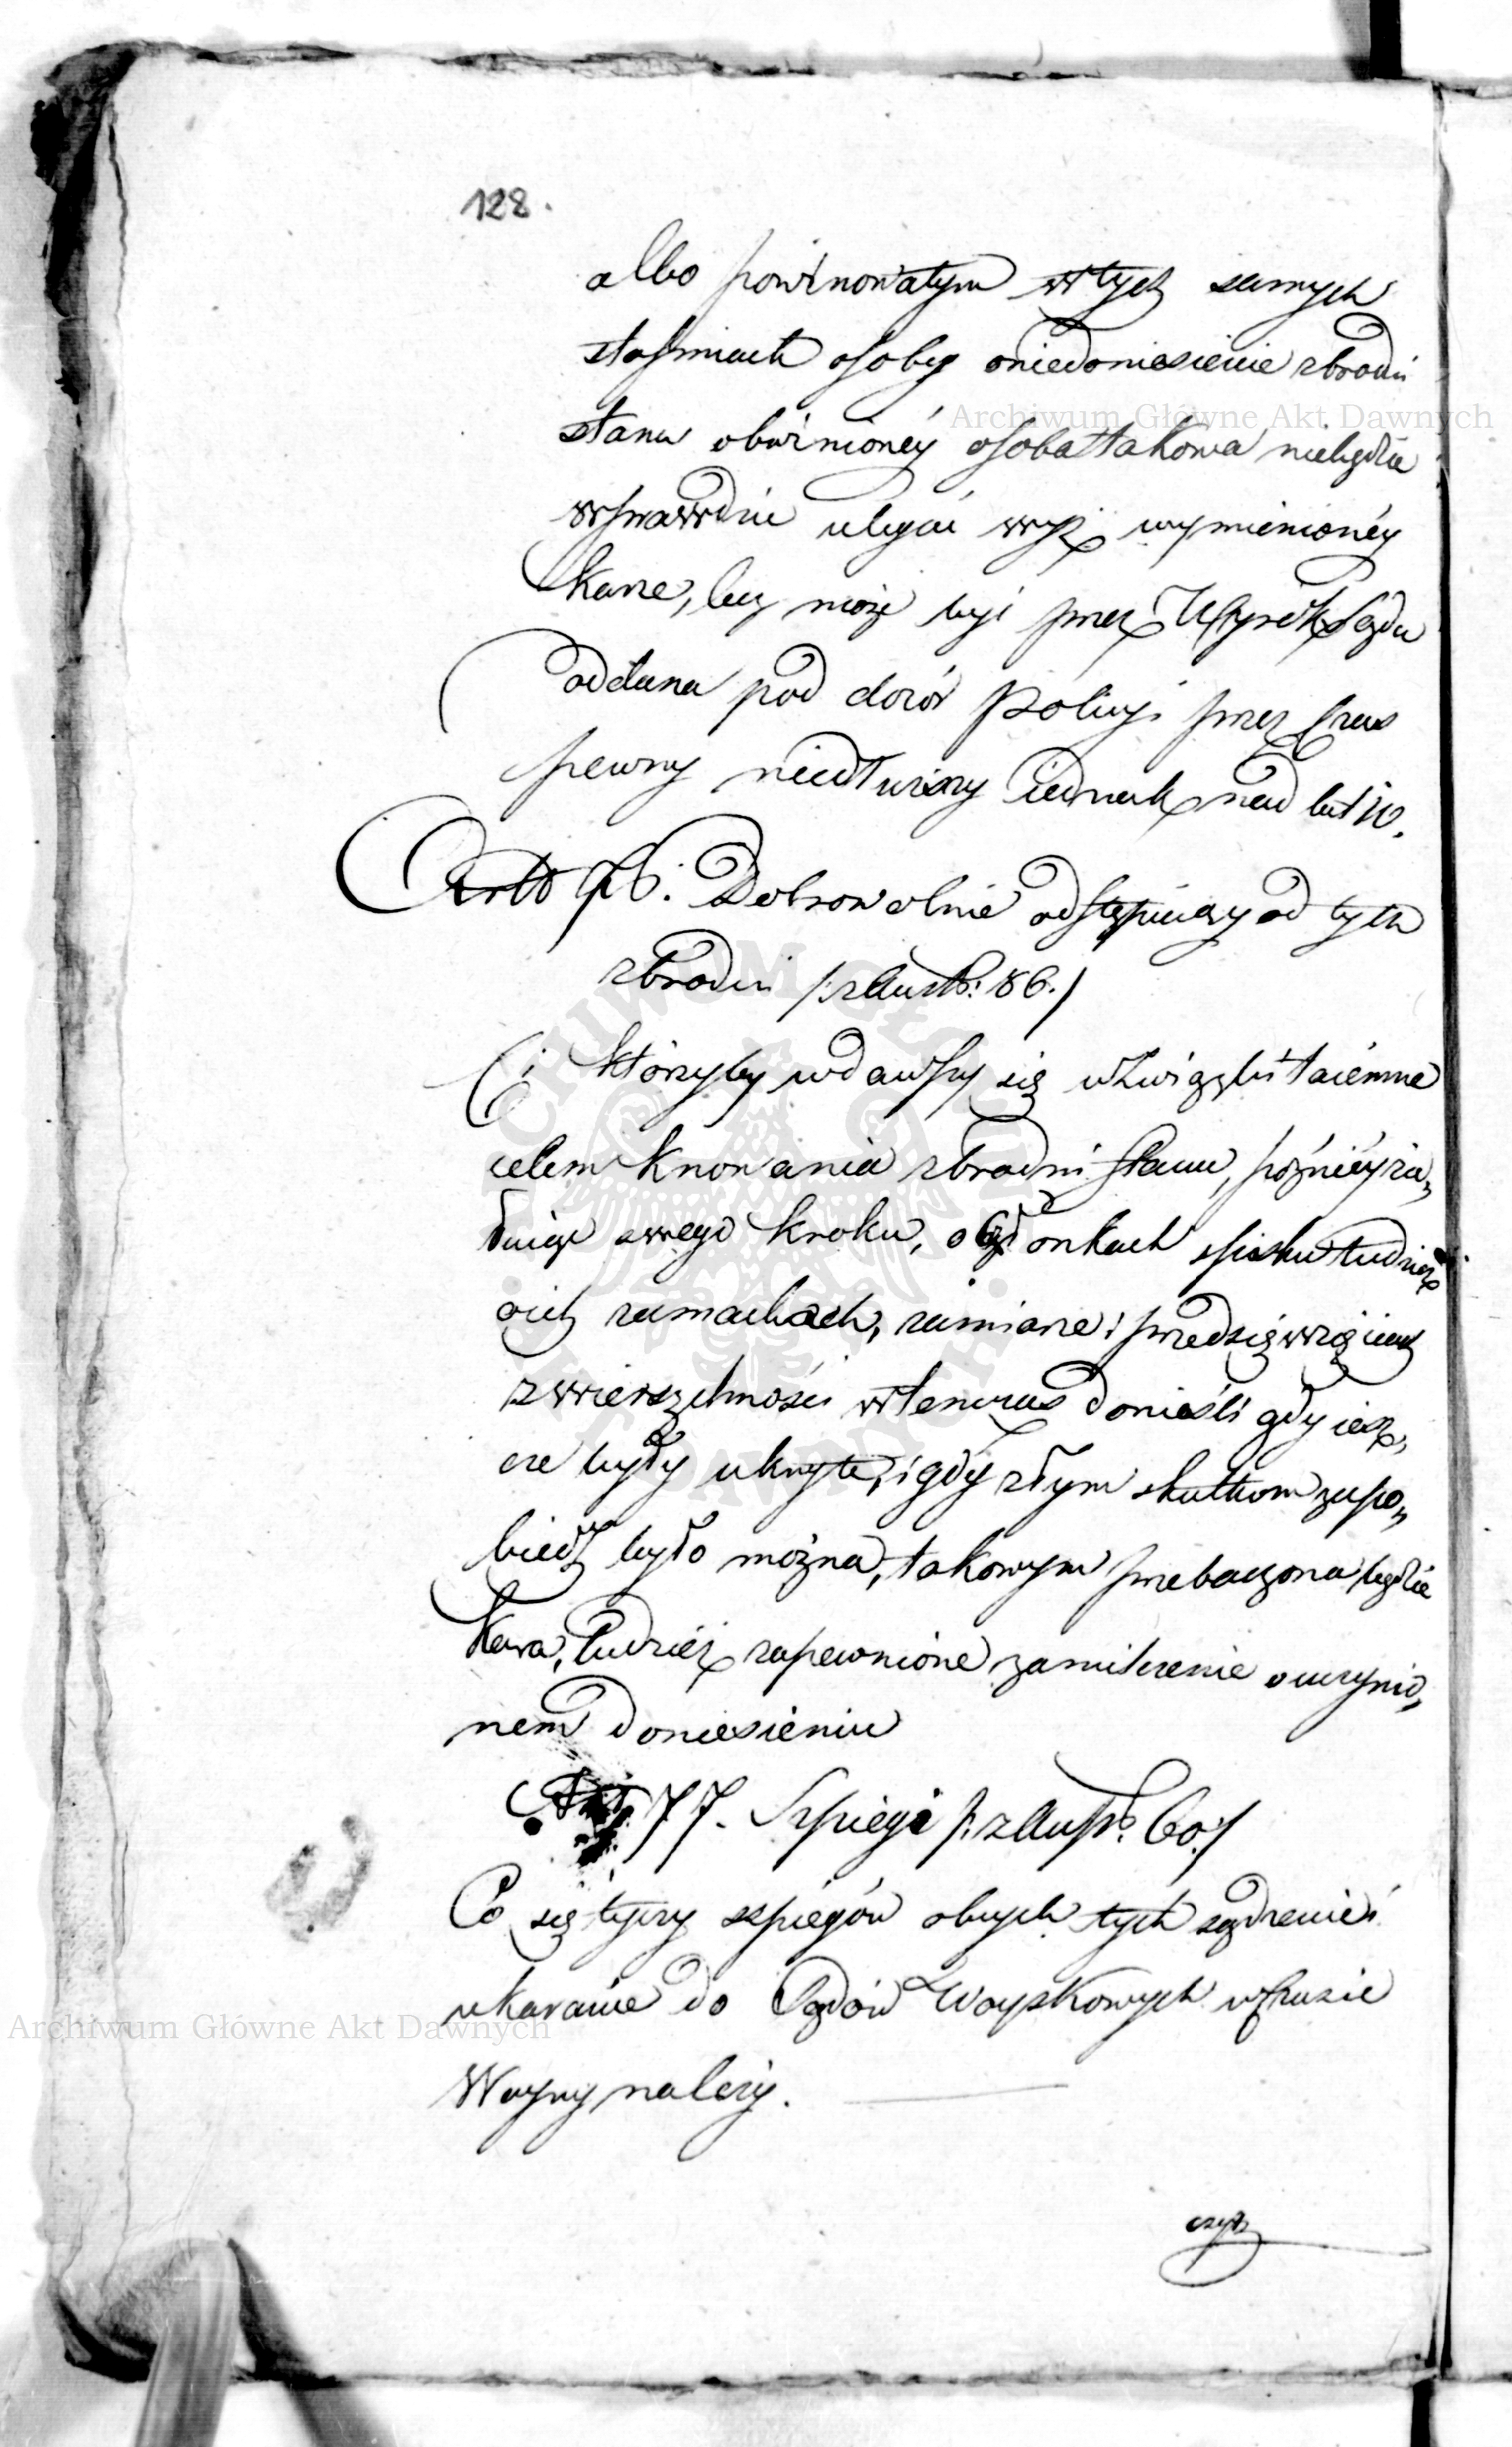 128.
albo powinowatym w tych samych
stopniach osoby oniedoniesienie zbrodni
stanu obwinionéy osoba takowa niebędzie
wprawdzie ulegać wyż wymienionéy
karze, lecz może być przez Wyrok Sądu
oddana pod dozór Policyi przez Czas
pewny niedłuższy iednak nad lat 10.
Artt 76. Dobrowolnie odstępuiący od tych
zbrodni /:z Austr: 86./
Ci którzyby wdawszy się w Związki taiemne
celem knowania zbrodni stanu, późniéy ża„
łuiąc swego kroku, o Członkach spisku tudzież
o ich zamachach, zamiarze i przedsięwzięciach
zwierzchności wtenczas donieśli gdy iesz„
cze były ukryte, i gdy złym skutkom zapo„
biedz było można, takowym przebaczona będzie
kara, tudzież zapewnione zamilczenie o uczynio„
nem doniesieniu
Art 77. Szpiegi /: z Austr: 60:/
Co się tyczy szpiegów obcych tych sądzenie i
ukaranie do Sądów Woyskowych w Czasie
Woyny należy.
Archiwum Główne Akt Dawnych
Archiwum Główne Akt Dawnych